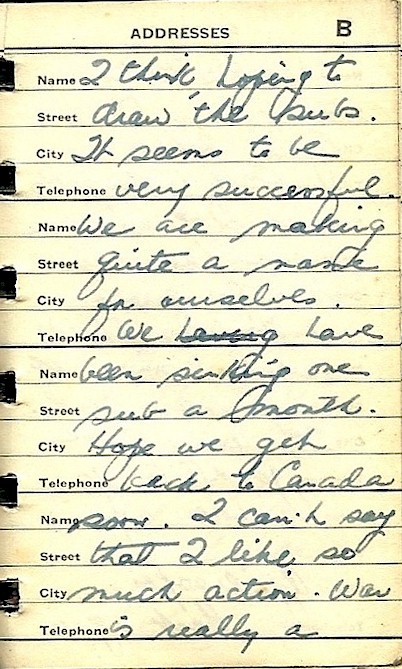 ADDRESSES B
Name I think hoping to
Street draw the subs.
City It seems to be
Telephone very successful.
Name We are making
Street quite a name
City for ourselves.
Telephone We having have
Name been sinking one
Street sub a month.
City Hope we get
Telephone back to Canada
Name soon. I can't say
Street that I like so
City much action. War
Telephone is really a